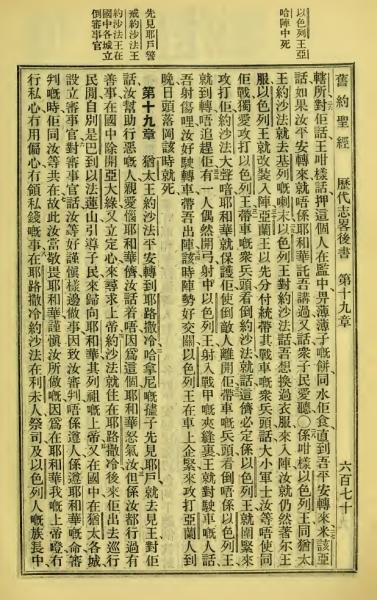 以色列王亞
哈陣中死
先見耶戶警
戒約沙法王
約沙法王在
國中各城立
倒審事官
舊約聖經 歷代志畧後書 第十九章 六百七十
轄所對佢話王咁樣話押這個人在監中畀薄薄子嘅餅同水佢食直到吾平安轉來米該亞
話如果汝平安轉來就唔係耶和華託吾講過又話衆子民愛聽〇係咁樣以色列王同猶太
王約沙法就去基列嘅喇末以色列王對約沙法話吾想換過衣服來入陣汝就仍然著尔王
服以色列王就改裝入陣亞蘭王以先分付統帶其戰車嘅衆兵頭話大小軍士汝等唔使同
佢戰獨愛攻打以色列王帶車嘅衆兵頭看倒約沙法就話這儕必定係以色列王就圍緊來
攻打佢約沙法大聲喑耶和華就保護佢使倒敵人離開佢帶車嘅兵頭看倒唔係以色列王
就到轉唔追趕佢有一人偶然開弓射中以色列王射入戰甲嘅夾縫裏王就對駛車嘅人話
吾射傷哩汝好駛轉車帶吾出陣該時陣勢好交關以色列王在車上企緊來攻打亞蘭人到
晚日頭落岡該時就死
第十九章 猶太王約沙法平安轉到耶路撒冷哈拿尼嘅孻子先見耶戶就去見王對佢
話汝幫助行惡嘅人親愛惱耶和華儕汝話着唔因爲這個耶和華怒氣汝但係汝都行過有
善事在國中除開亞大綠又立定心來尋求上帝約沙法就住在耶路撒冷後來佢出去巡行
民間自別是巴到以法蓮山引導子民來歸向耶和華其列祖嘅上帝又在國中在猶太各城
設立審事官對審事官話汝等好謹愼樣邊做事因致汝審判唔係遵人係遵耶和華嘅命審
判嘅時佢同汝等共在故此汝當敬畏耶和華謹愼汝所做嘅因爲在耶和華我嘅上帝曾有
行私心有用偏心有領私錢嘅事在耶路撒冷約沙法在利未人祭司及以色列人嘅族長中